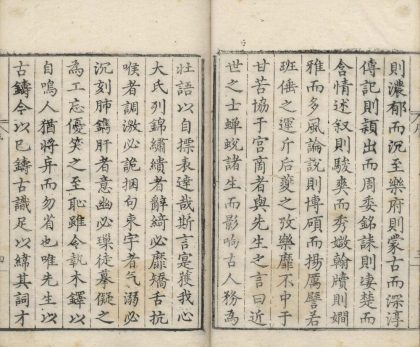 則濃郁而沉至樂府則蒙古而深淳
傳記則穎出而周委銘誄則悽楚而
含情述叙則駿爽而秀媺翰牘則嫺
雅而多風論說則博碩而揚厲譬若
班倕之運斤后夔之攷樂靡不中于
甘苦協于宮商者與先生之言曰近
世之士蟬蛻諸生而影响古人務為
壯語以自標表達哉斯言寔獲我心
大氐列錦繡繢者辭綺必靡矯舌抗
喉者調激必詭捆句束字者气溺必
沉刻肺鐫肝者意幽必理徒摹儗之
為工忘優笑之至恥雖令執木鐸以
自鳴人猶將弃而勿省也唯先生以
古鑄今以巳鑄古識足以緯其詞才